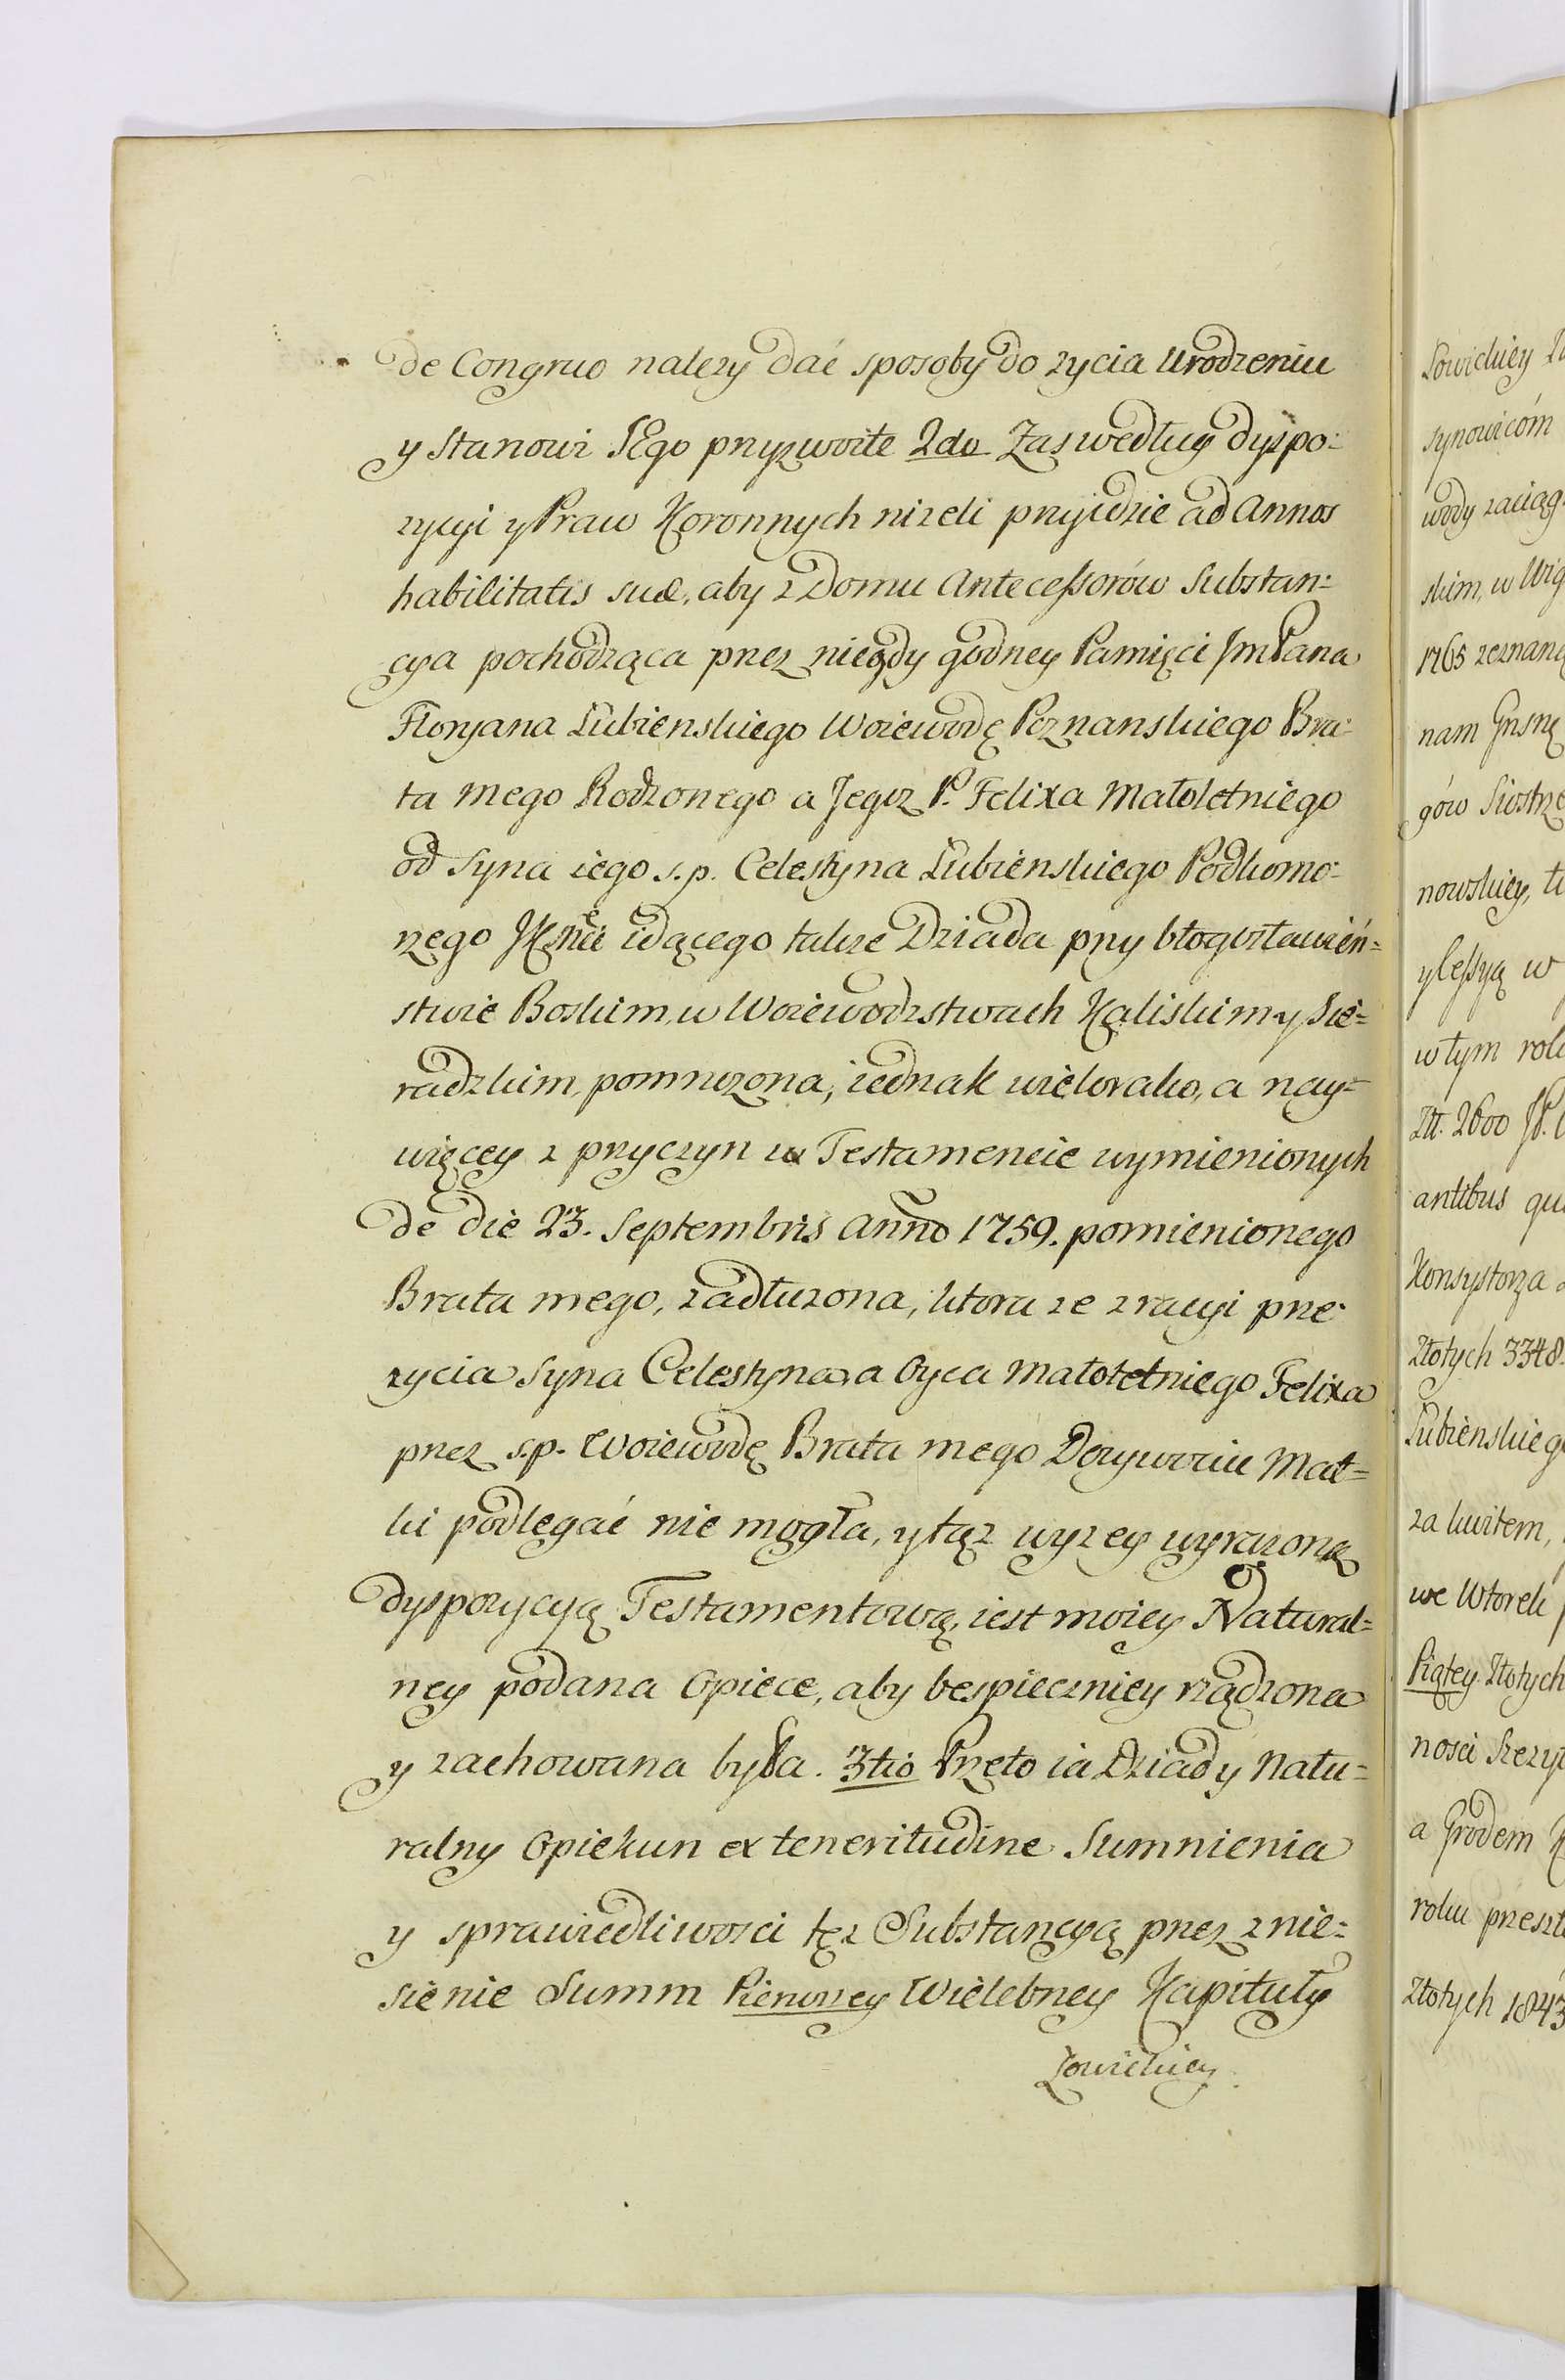 de Congruo nalezy dać sposoby do zycia Urodzeniu
y Stanowi IEgo przyzwoite 2do Zas według dyspo:
zycyi y Praw Koronnych nizeli przyidzie ad Annos
habilitatis suæ, aby z Domu Antecessorów Substan:
cya pochodząca przez niegdy godney Pamięci JmPana
Floryana Łubienskiego Woiewodę Poznanskiego Bra:
ta mego Rodzonego a Jegoz P. Felixa Małoletniego
od Syna iego s.p. Celestyna Łubienskiego Podkomo:
rzego JKMci idącego takze Dziada przy błogosławień=
stwie Boskim, w Woiewodzstwach Kaliskim y Sie=
radzkim, pomnozona, iednak wielorako, a nay=
więcey z przyczyn w Testamencie wymienionych
de die 23. Septembris Anno 1759. pomienionego
Brata mego, zadłuzona, ktora ze z racyi prze:
zycia Syna Celestyna, a Oyca Małoletniego Felixa
przez s.p. Woiewodę Brata mego Dozywociu Mat=
ki podlegać nie mogła, y tąz wyzey wyrazoną
dyspozycyą Testamentową, iest moiey Natural=
ney podana Opiece, aby bespieczniey rządzona
y zachowana była. 3tio Przeto ia Dziad y Natu=
ralny Opiekun ex teneritudine Sumnienia
y sprawiedliwosci tęz Substancyą przez znie=
sienie Summ Pierwszey Wielebney Kapituły
Łowickiey
Łowickiey
synowicóm
wody zaciąg
skim, w Wig
1765 zeznaną
nam Gnsną
gów Siostrze
nowskiey, t
y Cessyą w
w tym rok
Złł. 2600 JP.
antibus qu
Konsystorza
Złotych 3348.
Łubienskieg
za kwitem,
we Wtorek
Piątey Złotych
nosci Szczyt
a Grodem K
roku przeszł
Złotych 1843